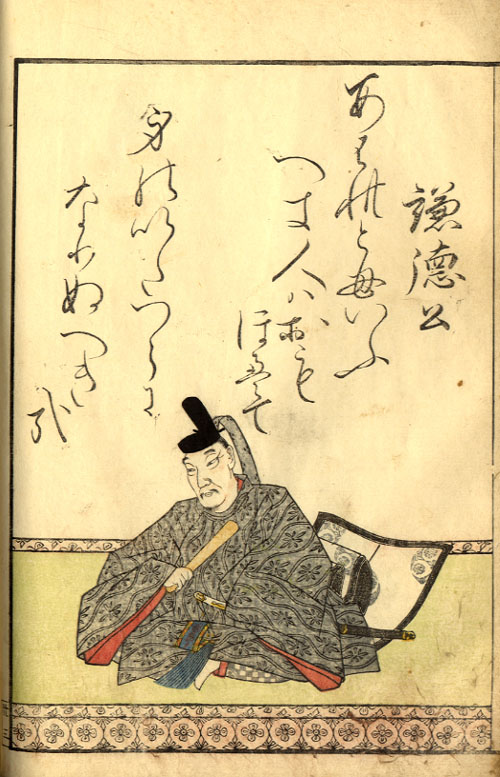 謙德公
あはれともいふ
へき人はおも
ほえて
身のいたつらに
なりぬへき
哉